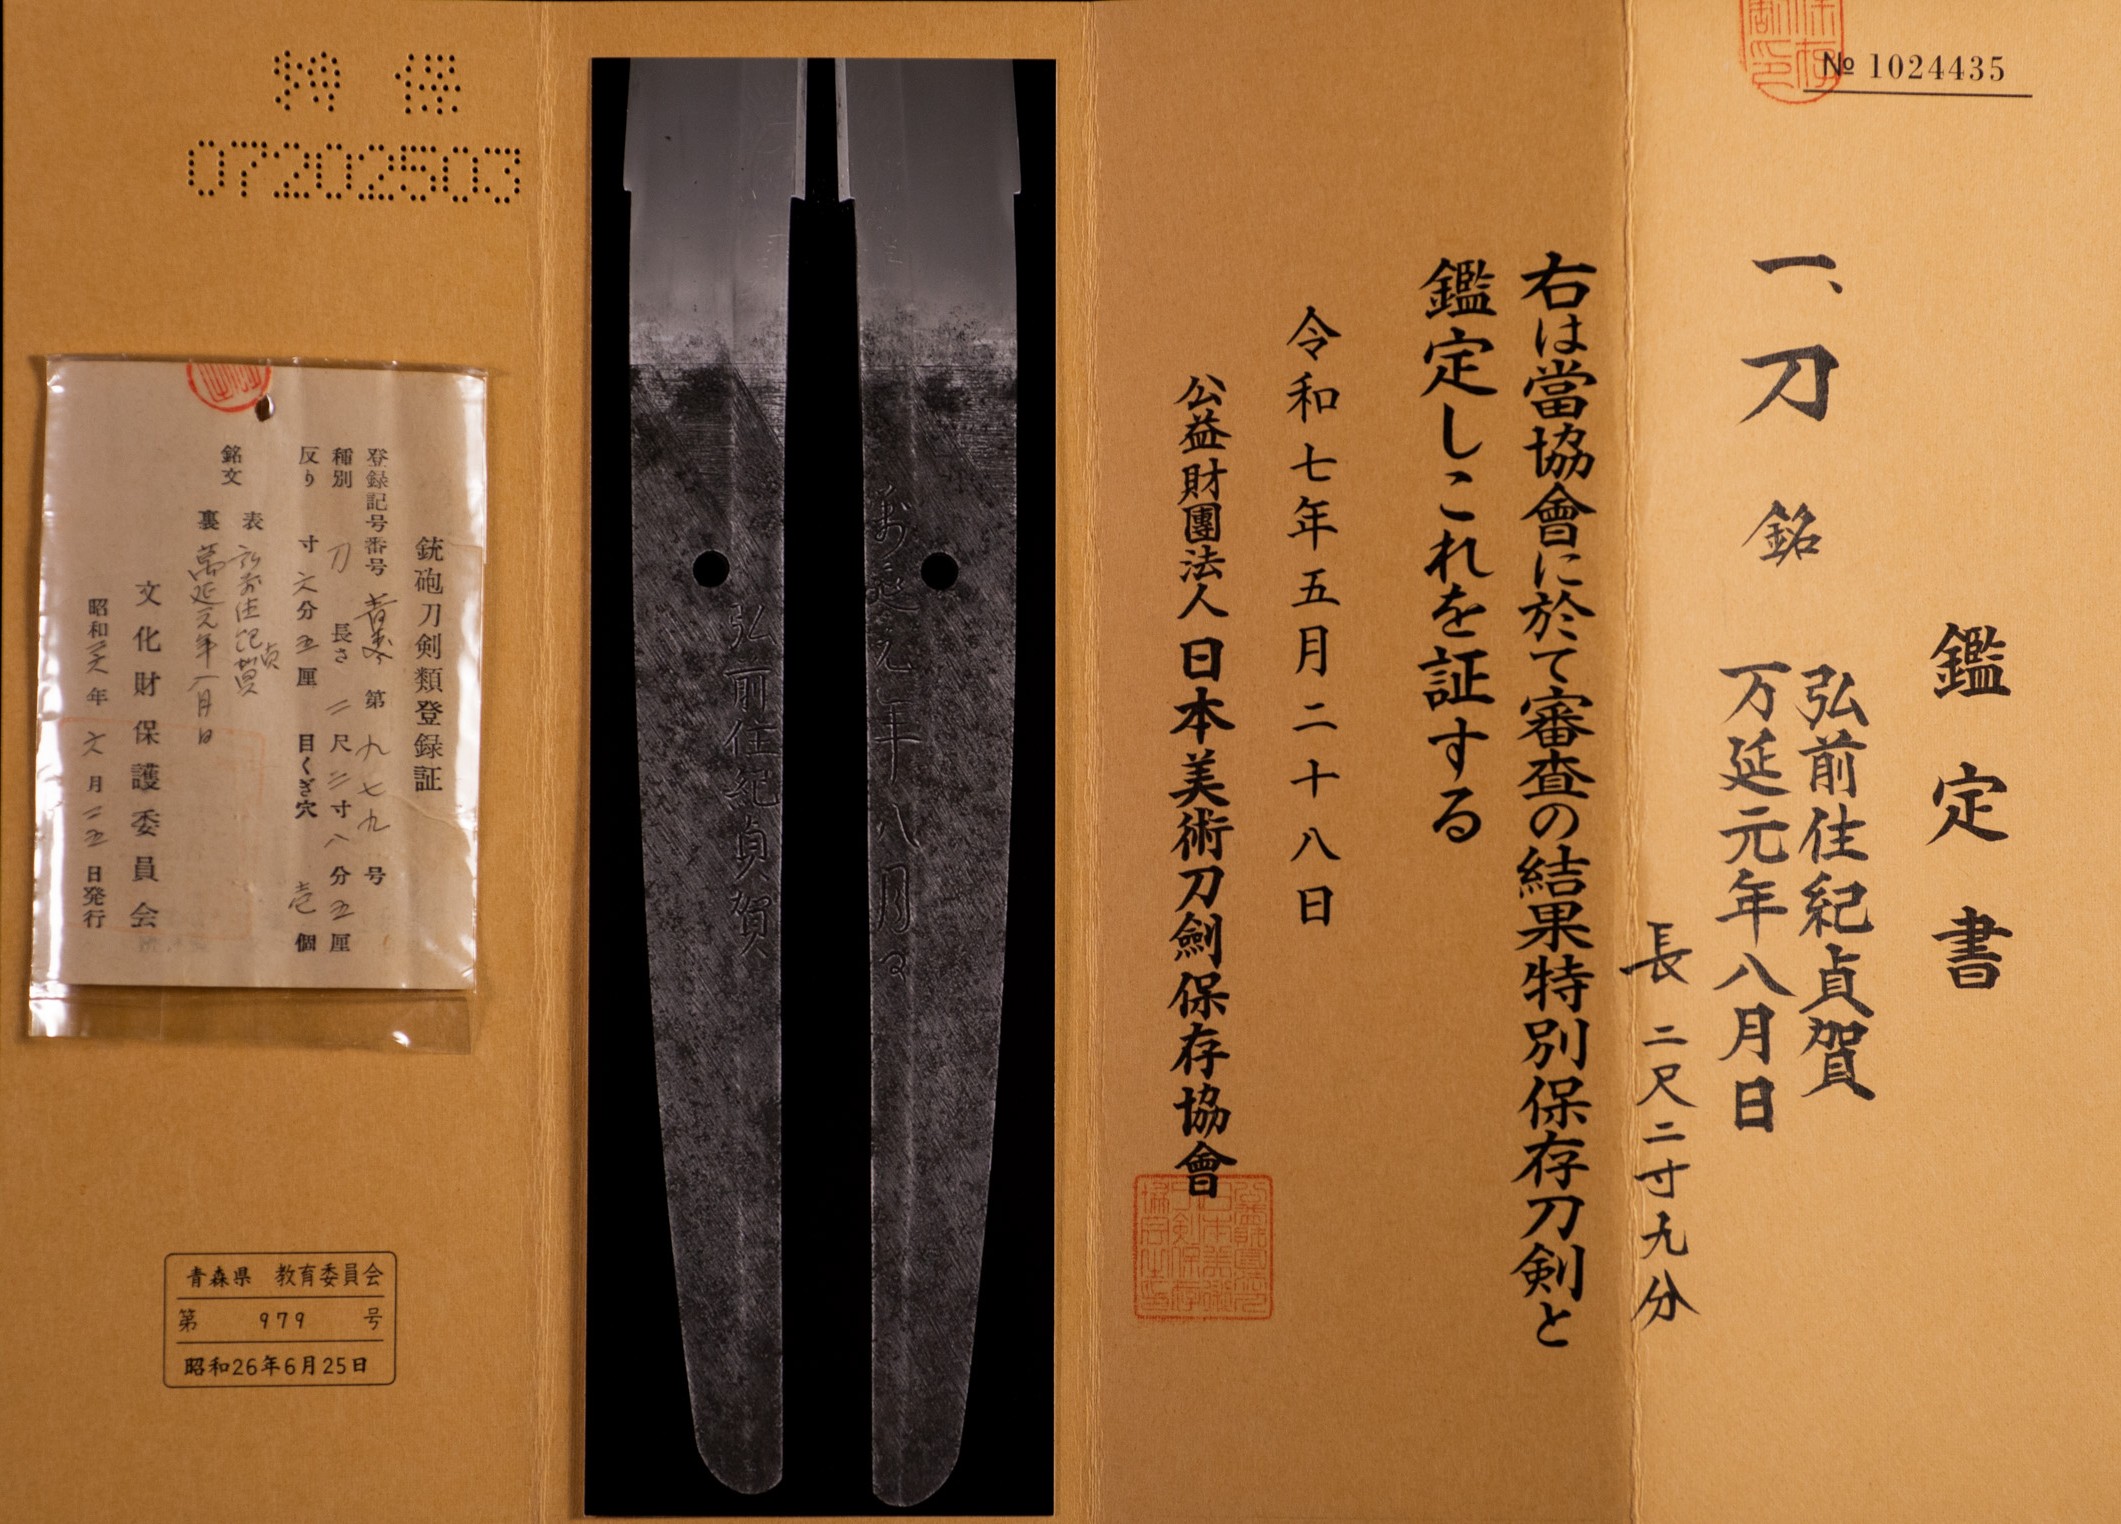 № 1024435
鑑定書
一、刀 銘 弘前住紀貞賀
万延元年八月日
長 二尺二寸九分
右は當協會に於て審査の結果特別保存刀剣と
鑑定しこれを証する
令和七年五月二十八日
公益財團法人 日本美術刀劍保存協會
万延元年八月日
弘前住紀貞賀
特保
07202503
銃砲刀剣類登録証
登録記号番号 青森 第九七九号
種別 刀 長さ 二尺三寸八分五厘
反り 寸六分五厘 目くぎ穴 壱個
銘文 表 弘前住紀貞賀
裏 萬延元年八月日
文化財保護委員会
昭和 年六月二五日発行
青森県 教育委員会
第 979 号
昭和26年6月25日